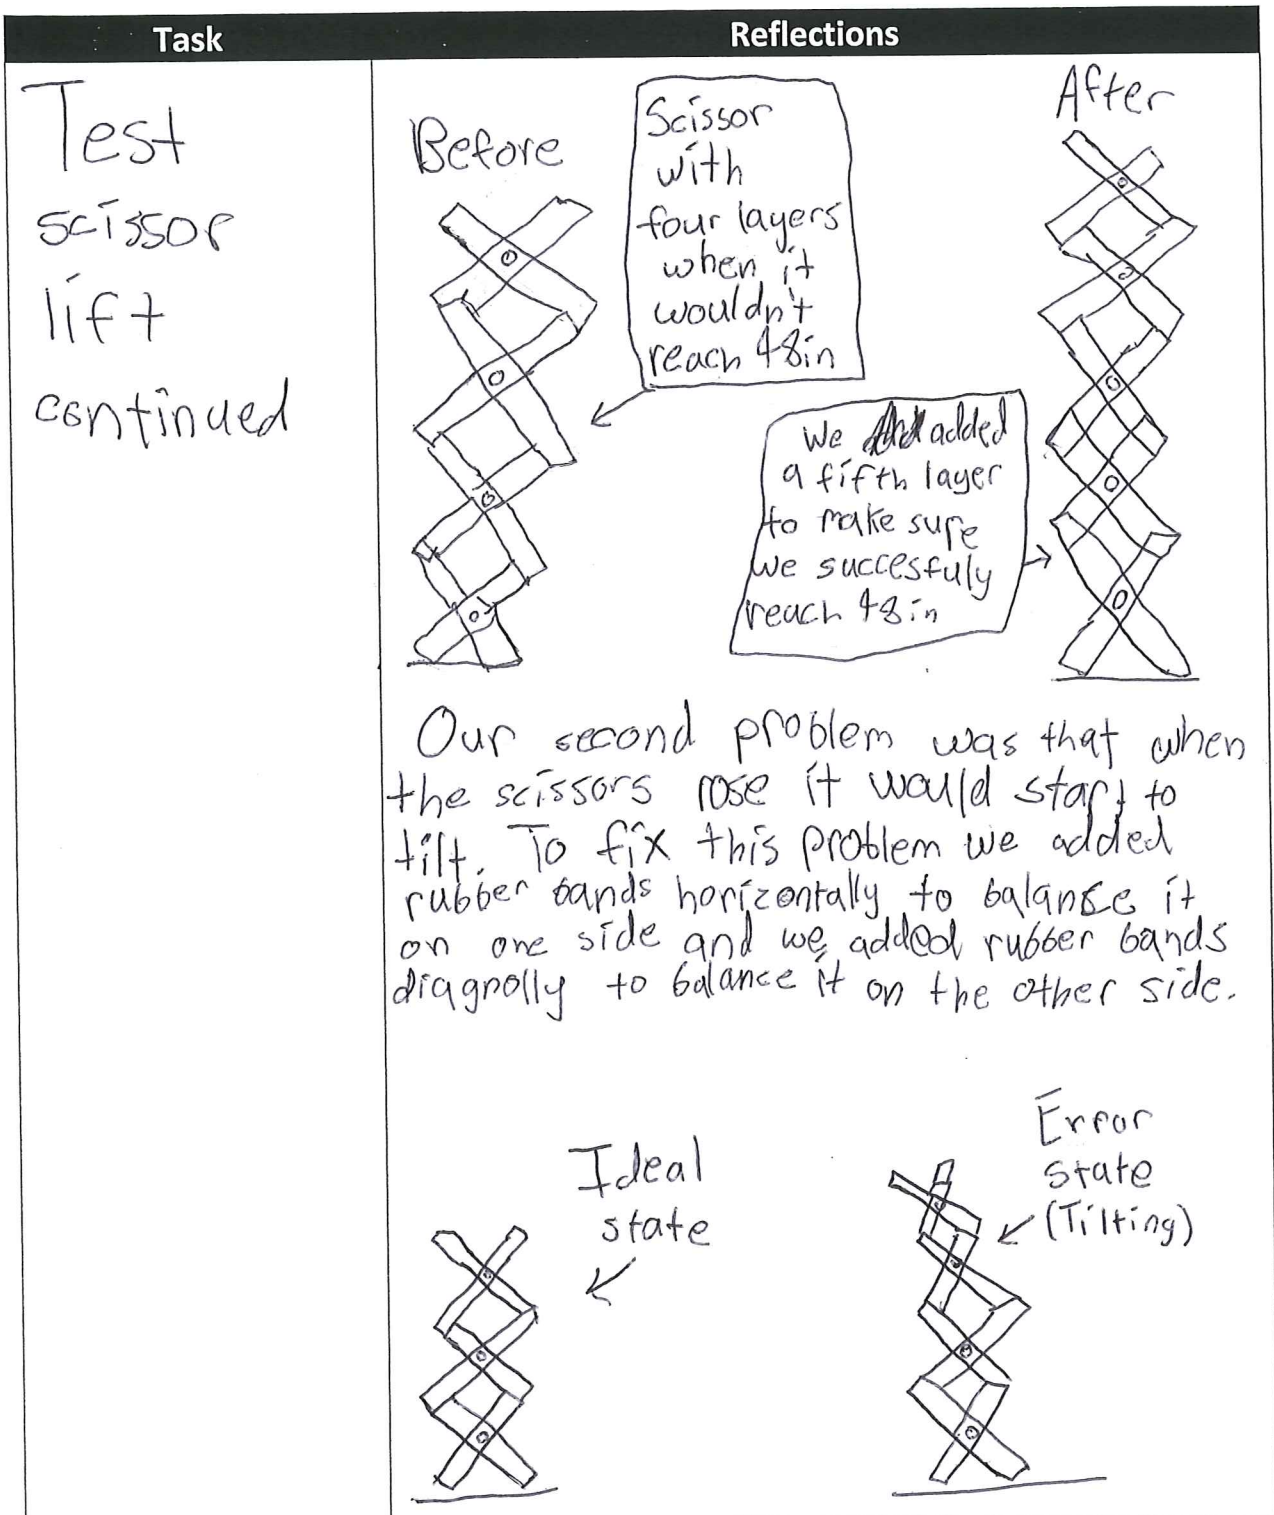 Task
Reflections
Test
scissor
lift
continued
Before
Scissor
with
four layers
when it
wouldn't
reach 48in
After
We added
a fifth layer
to make sure
we succesfuly
reach 48in
Our second problem was that when
the scissors rose it would start to
tilt. To fix this problem we added
rubber bands horizontally to balance it
on one side and we added rubber bands
diagnolly to balance it on the other side.
Ideal
state
Error
state
(Tilting)